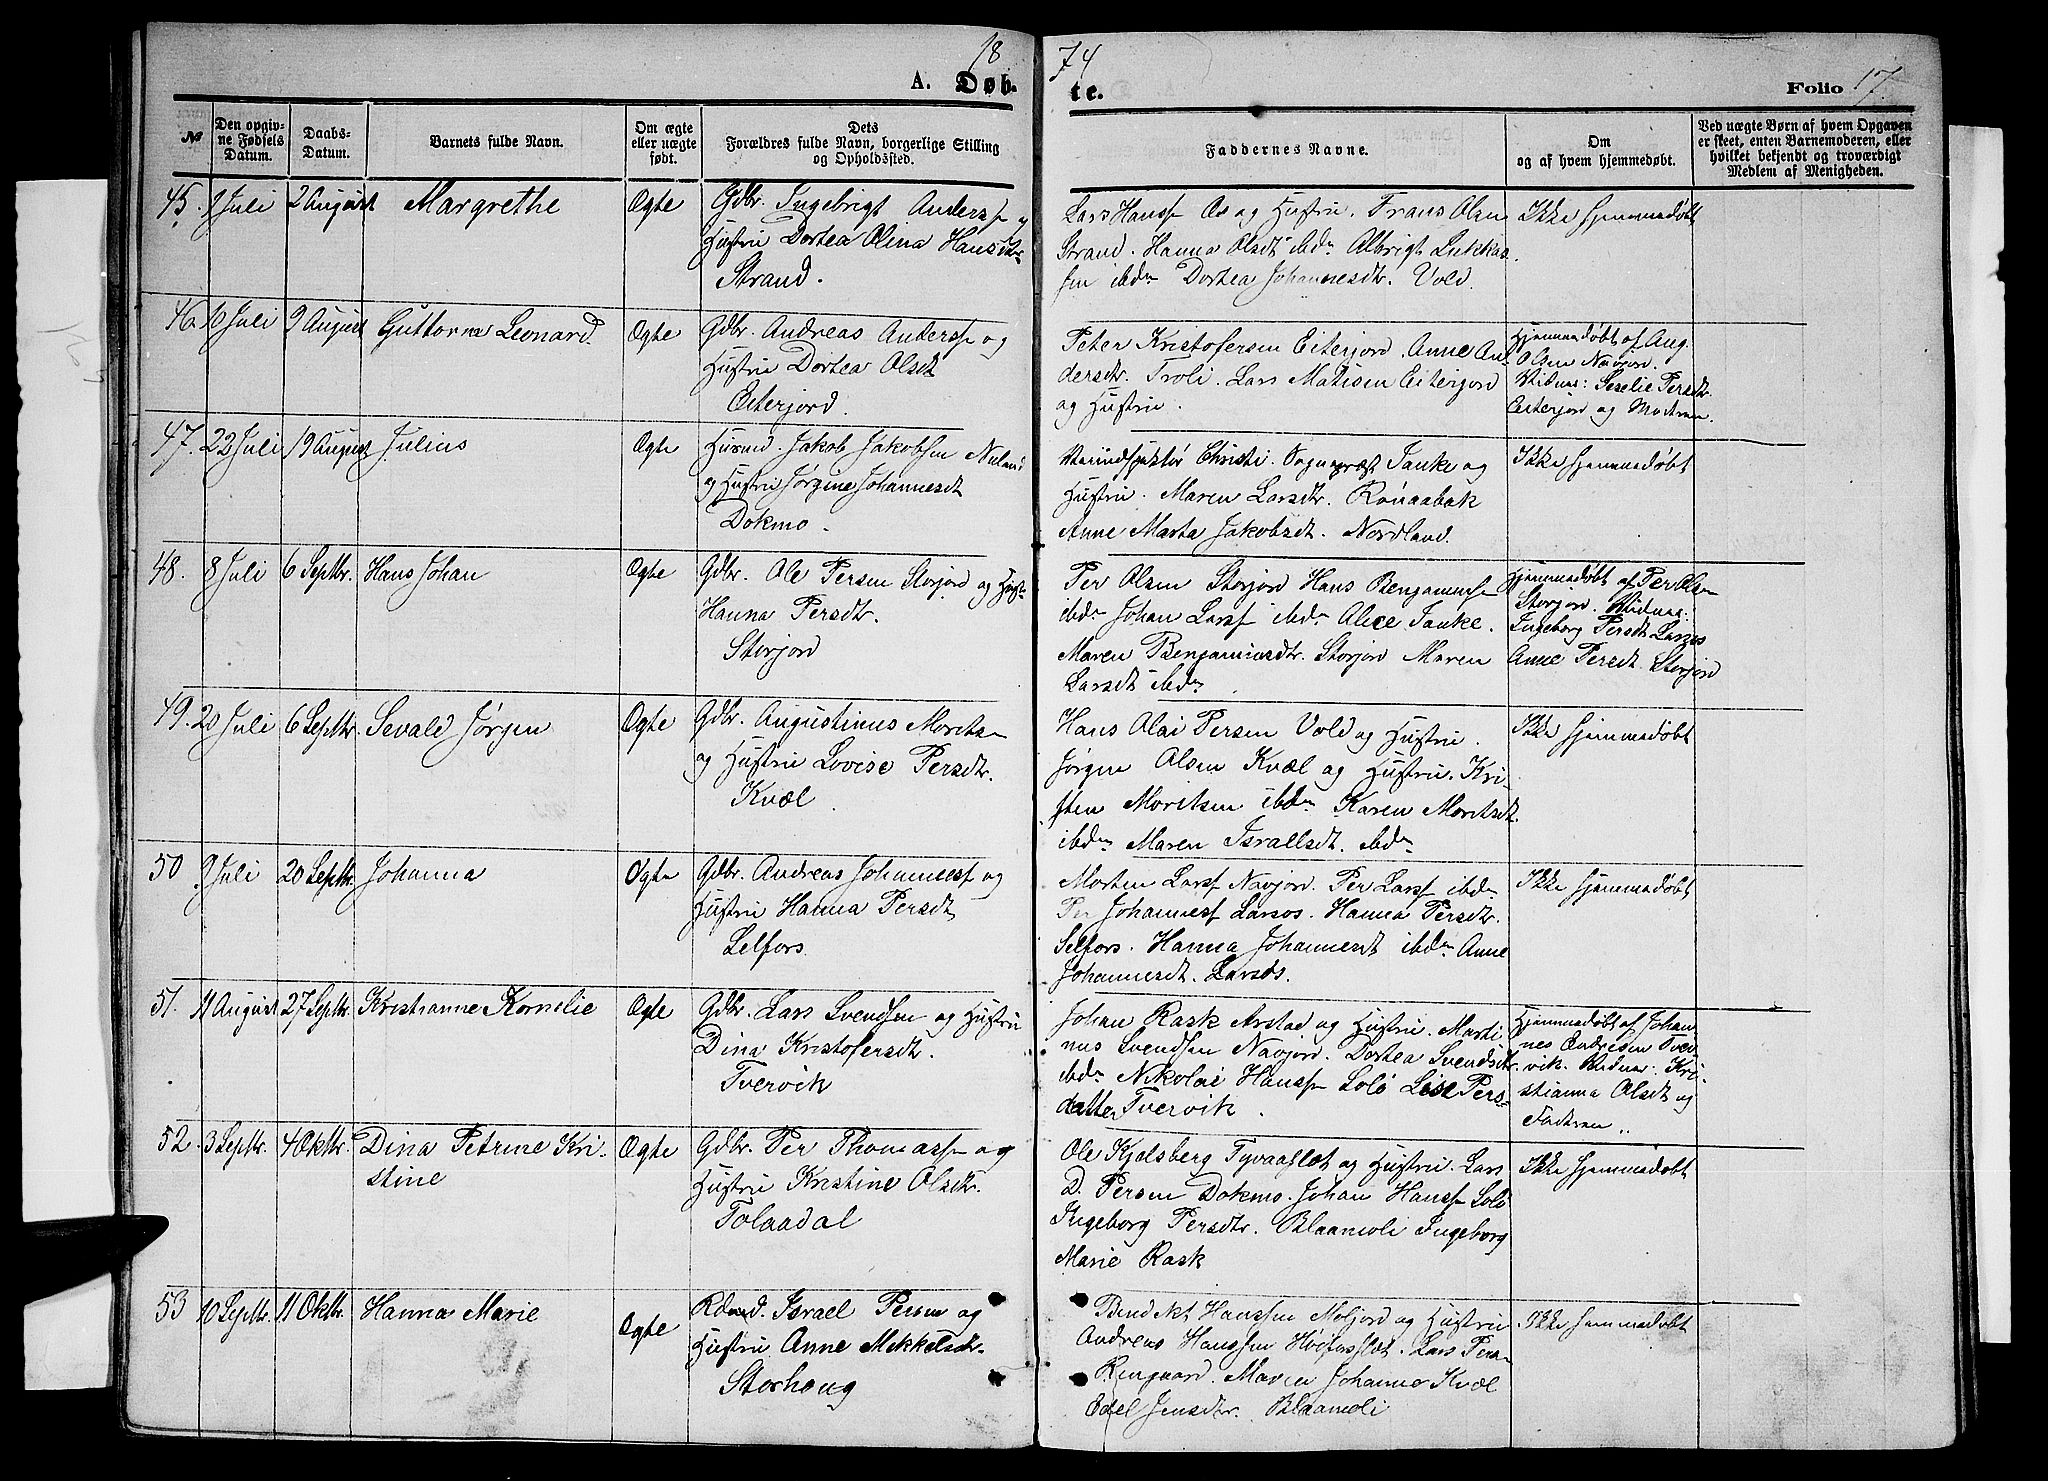 18 74
A. Døb- te. Folio 17.
№
Den opgiv-
ne Fødsels
Datum.
Daabs-
Datum.
Barnets fulde Navn.
Om ægte
eller uægte
født.
Dets
Forældres fulde Navn, borgerlige Stilling
og Opholdssted.
Faddernes Navne.
Om
og af hvem hjemmedøbt.
Ved uægte Børn af hvem Opgaven
er skeet, enten Barnemoderen, eller
hvilket bekjendt og troværdigt
Medlem af Menigheden.
45. 9 Juli 2 August Margrethe Ægte
Gdbr. Ingebrigt Anderss. og
Hustru Dortea Olina Hansdtr.
Strand.
Lars Hanss. Os og Hustru. Frans Olsen
Strand. Hanna Olsdt ibdm Albrigt Lukkas-
sen ibdm Dortea Johannesdtr. Vold.
Ikke hjemmedøbt
46. 10 Juli 9 August Guttorm Leonard. Ægte
Gdbr. Andreas Anderss. og
Hustru Dortea Olsdt
Eiterjord.
Peter Kristofersen Eiterjord. Anne An-
dersdtr. Troli. Lars Matisen Eiterjord
og Hustru.
Hjemmedøbt af Aug.
Olsen Navjord.
Vidner: Seselie Persdt
Eiterjord og Modren.
47. 22 Juli 19 August Julius Ægte
Husmd. Jakob Jakobsen Nuland
og Hustru Jørgine Johannesdt
Dokmo.
Christi. Sognepræst Tanke og
Hustru. Maren Larsdtr. Rønaabak
Anne Marta Jakobsdt. Nordland.
Ikke hjemmedøbt
48. 8 Juli 6 Septbr. Hans Johan Ægte
Gdbr. Ole Persen Storjord og Hust.
Hanna Persdtr.
Storjord
Per Olsen Storjord Hans Benjamins.
ibdm Johan Larss. ibdm Alice Tanke.
Maren Benjaminsdtr. Storjord Maren
Larsdt ibdm
Hjemmedøbt af Per Olsen
Storjord. Vidner:
Ingeborg Persdt Larsos
Anne Persdt. Storjord
49. 20 Juli 6 Septbr. Sevald Jørgen Ægte
Gdbr. Augustinus Moritsen
og Hustru Lovise Persdtr.
Kvæl.
Hans Olai Persen Vold og Hustru.
Jørgen Olsen Kvæl og Hustru. Kri-
sten Moritsen ibdm Karen Moritsdt.
ibdm Maren Israelsdt. ibdm
Ikke hjemmedøbt
50 9 Juli 20 Septbr. Johanna Ægte
Gdbr. Andreas Johanness. og
Hustru Hanna Persdt
Selfors.
Morten Larss. Navjord. Per Larss. ibdm
Per Johanness. Larsos. Hanna Persdtr.
Selfors. Hanna Johannesdt ibdm Anne
Johannesdt. Larsos.
Ikke hjemmedøbt
51. 11 August 27 Septbr. Kristianne Kornelie Ægte
Gdbr. Lars Svendsen og Hustru
Dina Kristofersdt.
Tvervik
Johan Rask Arstad og Hustru. Marti-
nus Svendsen Navjord. Dortea Svendsdtr.
ibdm Nikolai Hanss. Solø Lise Pers-
datter Tvervik.
Hjemmedøbt af Johan-
nes Andresen Tver-
vik. Vidner: Kri-
stianna Olsdt og
Fadren.
52. 3 Septbr. 4 Oktbr. Dina Petrine Kri-
stine Ægte
Gdbr. Per Thomass. og
Hustru Kristine Olsdtr.
Tolaadal
Ole Kjelsberg Tyvaaflot og Hustru. Lars
D. Persen Dokmo. Johan Hanss. Solø
Ingeborg Persdtr. Blaamoli Ingeborg
Marie Rask
Ikke hjemmedøbt
53 10 Septbr. 11 Oktbr. Hanna Marie Ægte
Israel Persen og
Hustru Anne Mikkelsdtr.
Storhoug
Bendikt Hanssen Moljord og Hustru
Andreas Hanssen Høifosslæt. Lars Pers.
Rengaard. Maren Johanne Kvæl
Edel Jensdtr. Blaamoli
Ikke hjemmedøbt